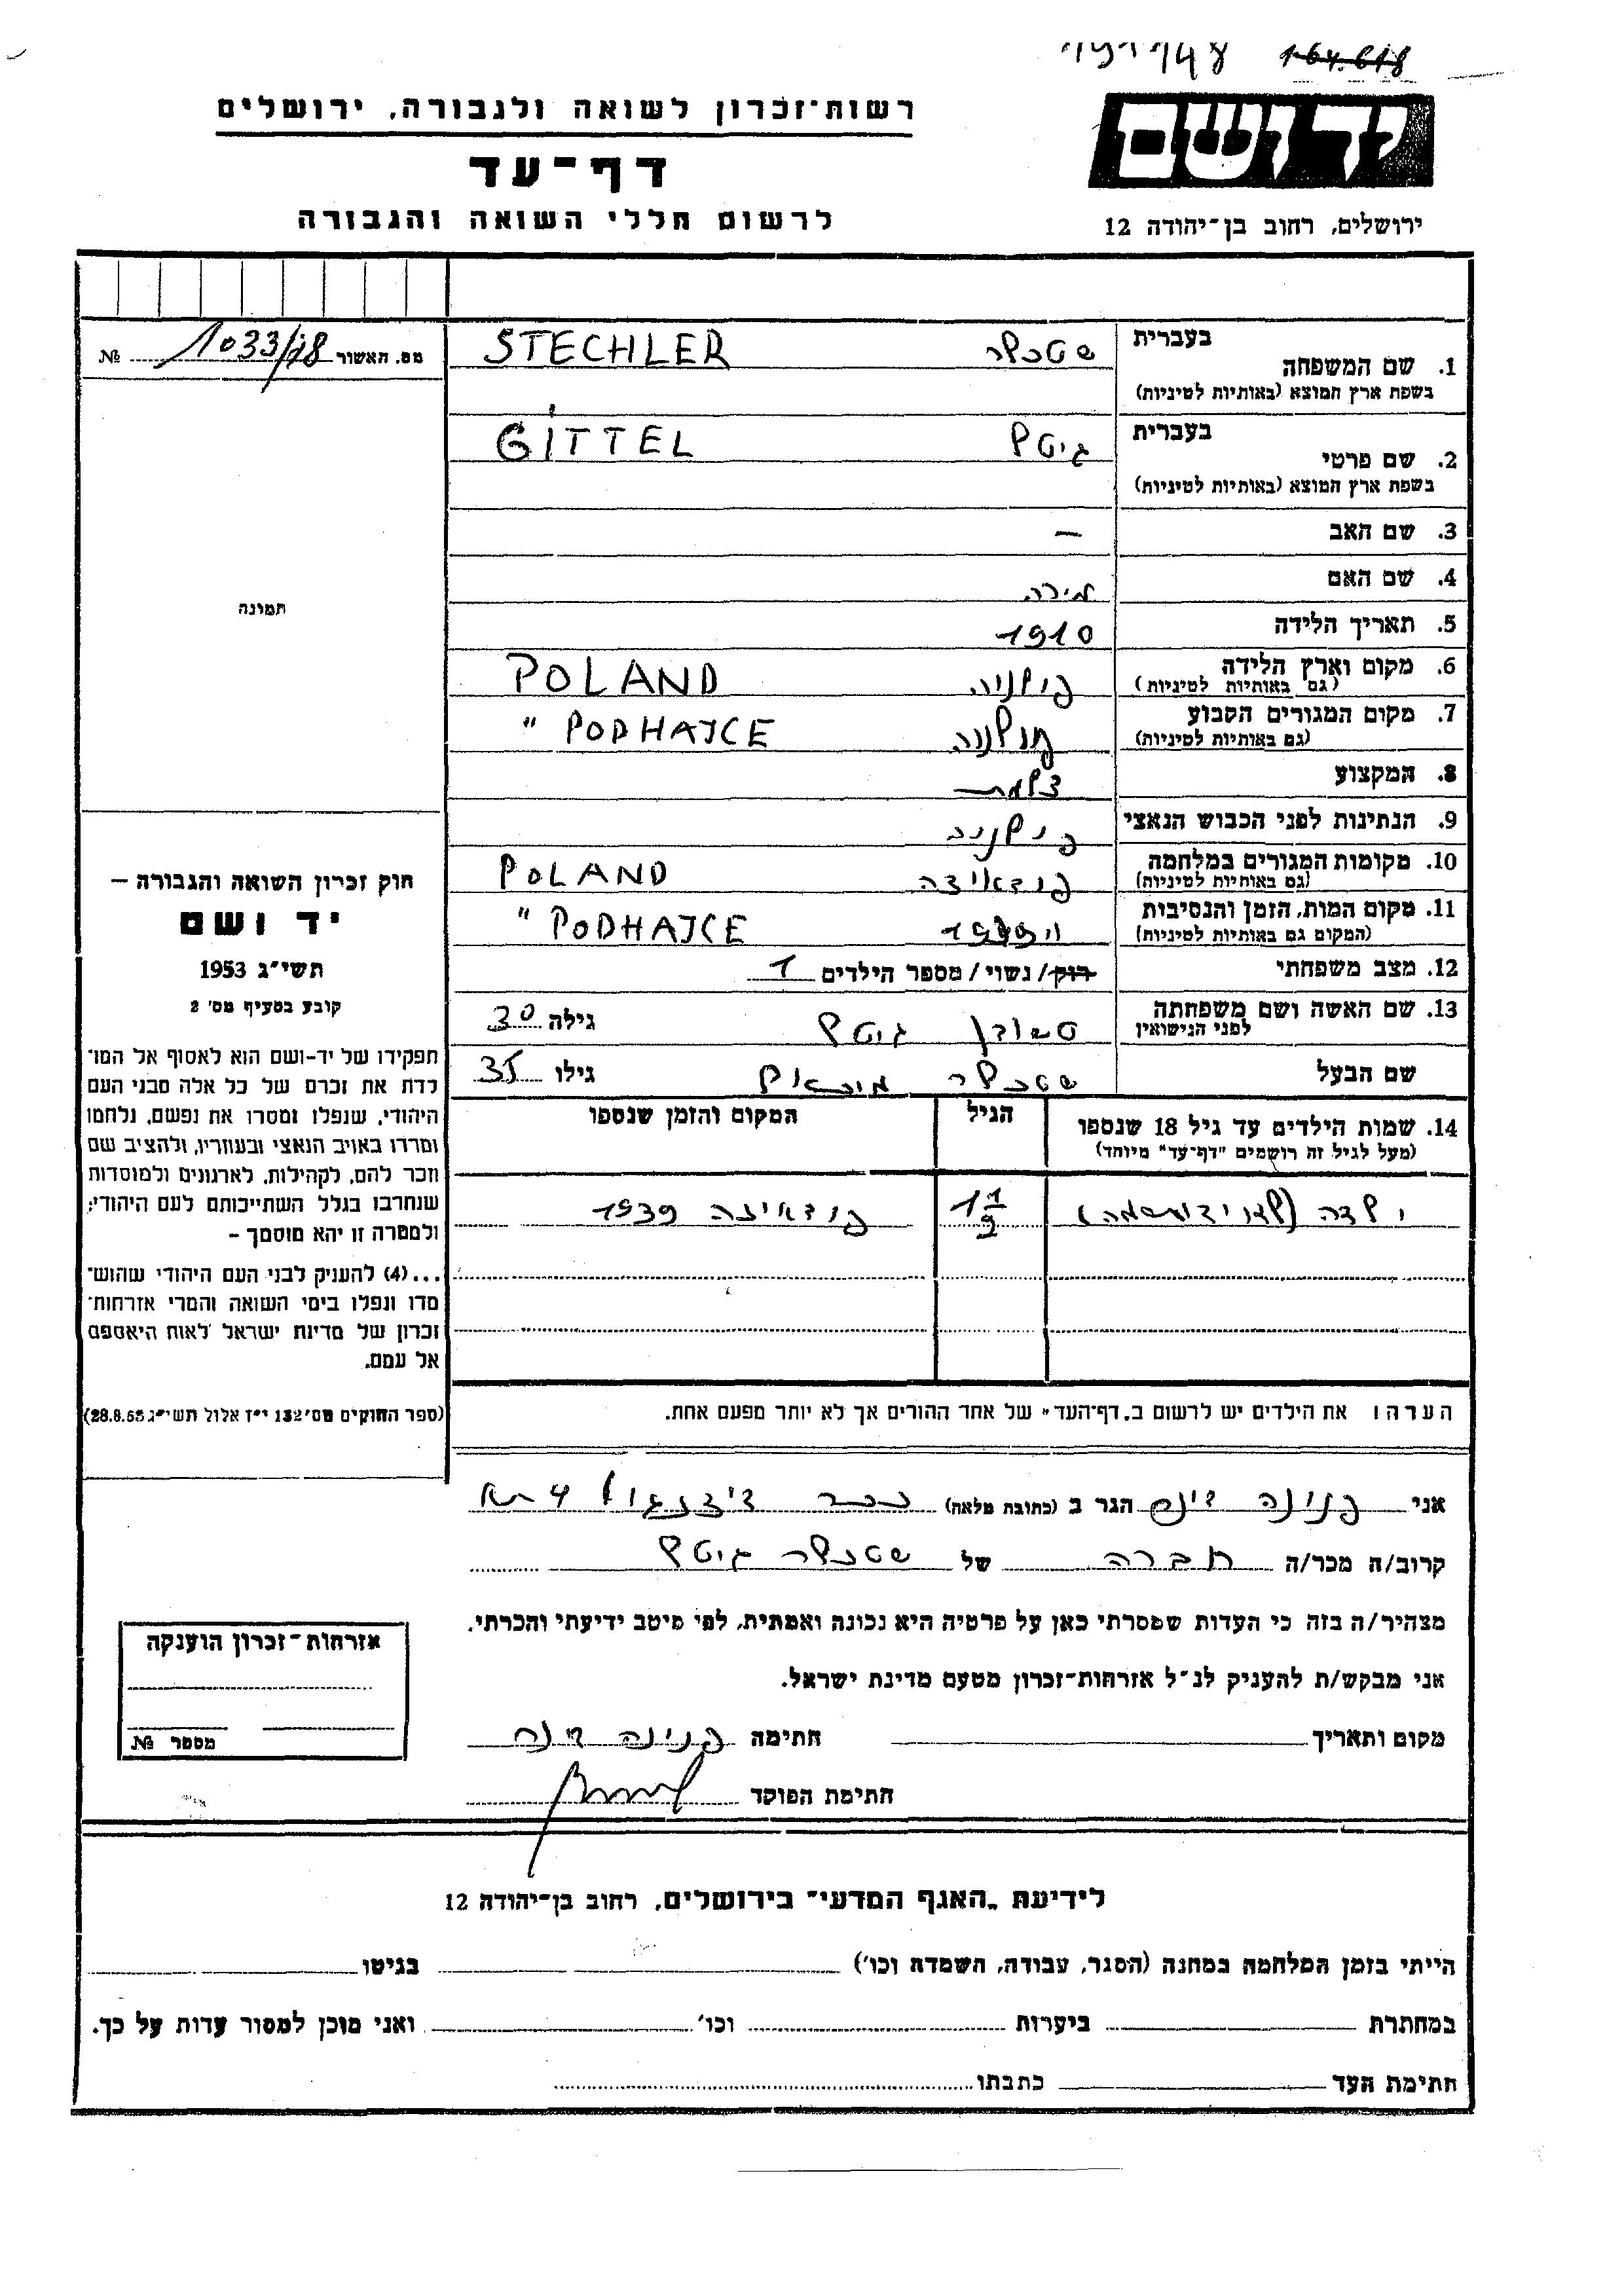 191748 164.618
יד ושם
רשות־זכרון לשואה ולגבורה, ירושלים
דף־עד
לרשום חללי השואה והגבורה
ירושלים, רחוב בן־יהודה 12
מס. האשור 1033/78 №
תמונה
חוק זכרון השואה והגבורה –
יד ושם
תשי״ג 1953
קובע בסעיף מס' 2
תפקידו של יד-ושם הוא לאסוף אל המו־
לדת את זכרם של כל אלה מבני העם
היהודי, שנפלו ומסרו את נפשם, נלחמו
ומרדו באויב הנאצי ובעוזריו, ולהציב שם
וזכר להם, לקהילות, לארגונים ולמוסדות
שנחרבו בגלל השתייכותם לעם היהודי;
ולמטרה זו יהא מוסמך –
...(4) להעניק לבני העם היהודי שהוש־
מדו ונפלו בימי השואה והמרי אזרחות־
זכרון של מדינת ישראל לאות היאספם
אל עמם.
(ספר החוקים מס' 132 י״ז אלול תשי״ג 28.8.53)
1. שם המשפחה בעברית שטכלר STECHLER
בשפת ארץ המוצא (באותיות לטיניות)
2. שם פרטי בעברית גיטל GITTEL
בשפת ארץ המוצא (באותיות לטיניות)
3. שם האב –
4. שם האם מירה
5. תאריך הלידה 1910
6. מקום וארץ הלידה פולניה POLAND
(גם באותיות לטיניות)
7. מקום המגורים הקבוע פולניה " PODHAJCE
(גם באותיות לטיניות)
8. המקצוע
9. הנתינות לפני הכבוש הנאצי פולניה
10. מקומות המגורים במלחמה פודאיצה POLAND
(גם באותיות לטיניות)
11. מקום המות, הזמן והנסיבות " PODHAJCE
(המקום גם באותיות לטיניות)
12. מצב משפחתי רוק/ נשוי/ מספר הילדים 1
13. שם האשה ושם משפחתה לפני הנישואין גיטל גילה 30
שם הבעל שטכלר מיכאל גילו 35
14. שמות הילדים עד גיל 18 שנספו הגיל המקום והזמן שנספו
(מעל לגיל זה רושמים "דף־עד" מיוחד)
ילדה 1 1/2 פודאיצה 1939
הערה: את הילדים יש לרשום ב„דף־העד" של אחד ההורים אך לא יותר מפעם אחת.
אני פנינה הגר ב (כתובת מלאה) ככר דיזנגוף 4 ת״א
קרוב/ה מכר/ה חברה של שטכלר גיטל
מצהיר/ה בזה כי העדות שמסרתי כאן על פרטיה היא נכונה ואמתית, לפי מיטב ידיעתי והכרתי.
אני מבקש/ת להעניק לנ״ל אזרחות־זכרון מטעם מדינת ישראל.
מקום ותאריך חתימה פנינה
חתימת הפוקד
אזרחות־זכרון הוענקה
מספר №
לידיעת „האגף המדעי" בירושלים, רחוב בן־יהודה 12
הייתי בזמן המלחמה במחנה (הסגר, עבודה, השמדה וכו') בגיטו
במחתרת ביערות וכו' ואני מוכן למסור עדות על כך.
חתימת העד כתבתו